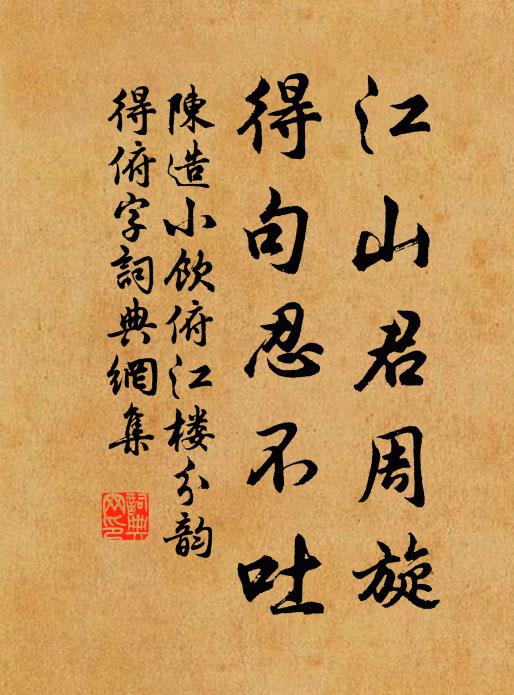 江山君周旋
得句忍不吐
陳造小飲俯江樓分韵
得俯字詞典網集
詞典網印